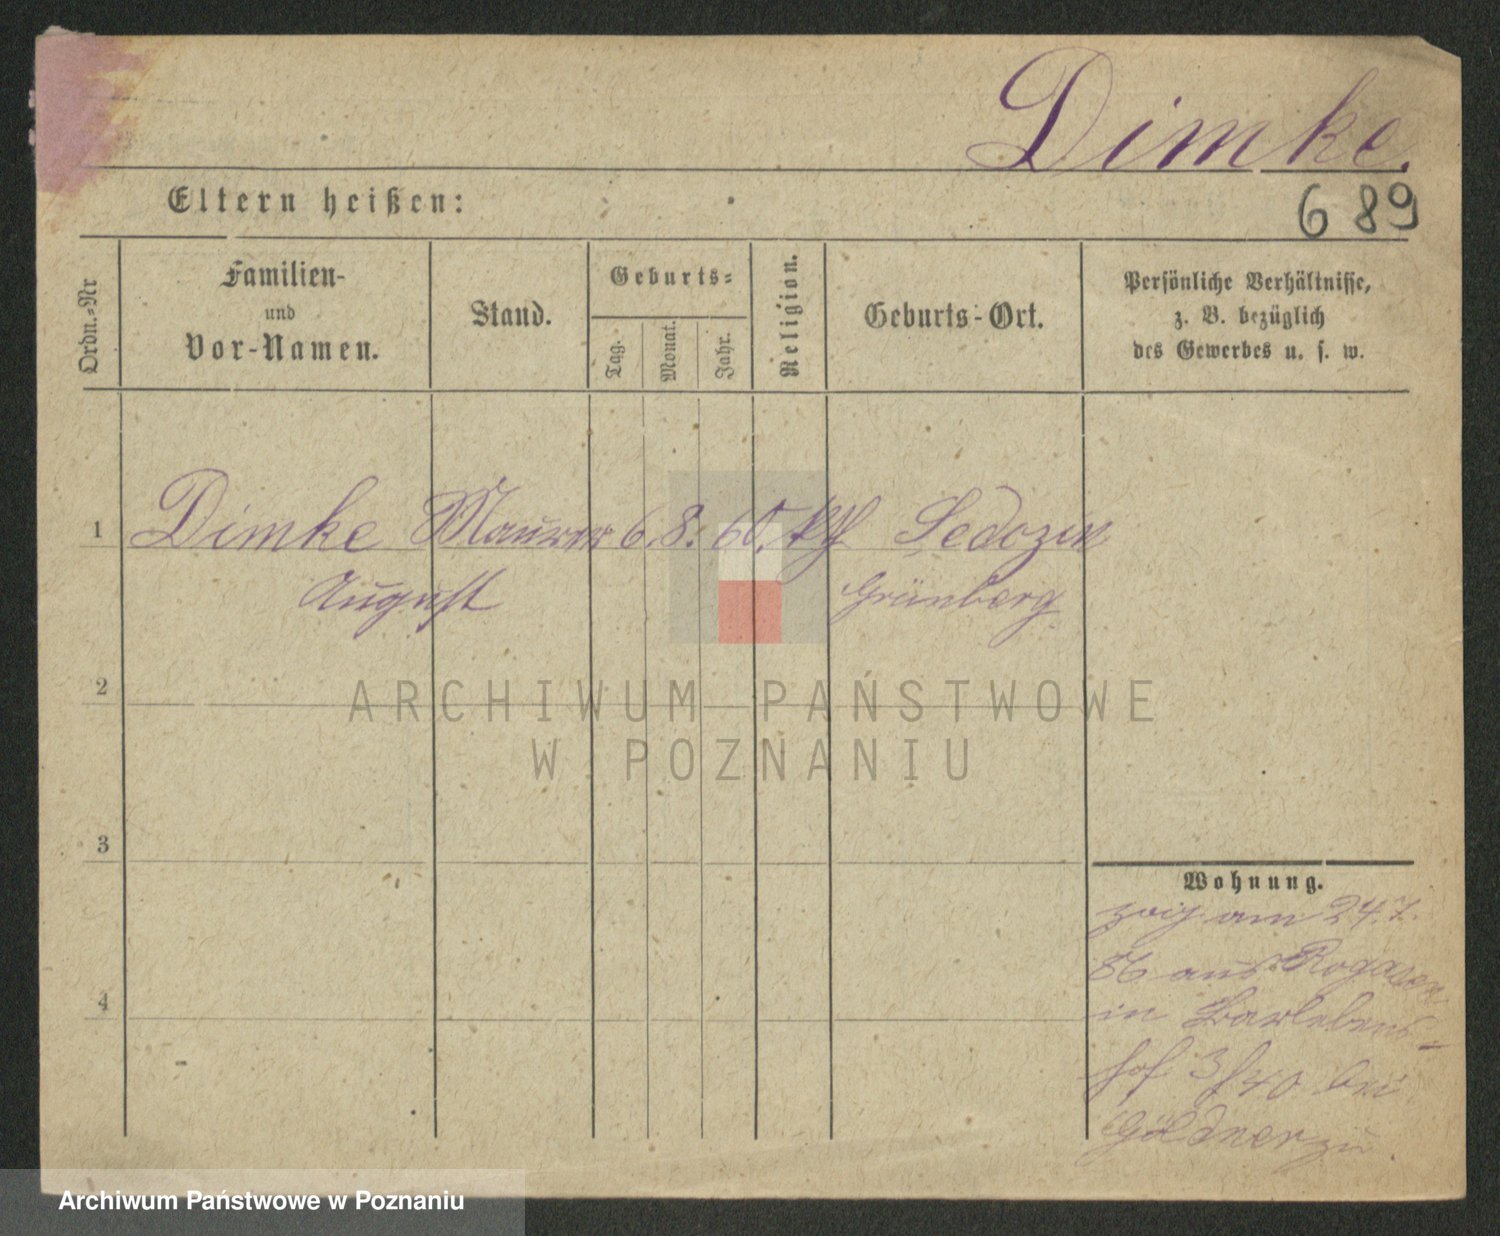 Dimke.
Eltern heißen:
689
Ordn.-Nr
Familien-
und
Vor-Namen.
Stand.
Geburts-
Tag.
Monat.
Jahr.
Religion.
Geburts-Ort.
Persönliche Verhältnisse,
z. B. bezüglich
des Gewerbes u. s. w.
1 Dimke Maurer 6. 8. 60. kth Sedozin
August Grünberg
2
ARCHIWUM PAŃSTWOWE
W POZNANIU
3
Wohnung.
zog am 24.7.
86 aus Rogasen
in Barlebens-
hof 3/40 bei
Göldner zu.
4
Archiwum Państwowe w Poznaniu